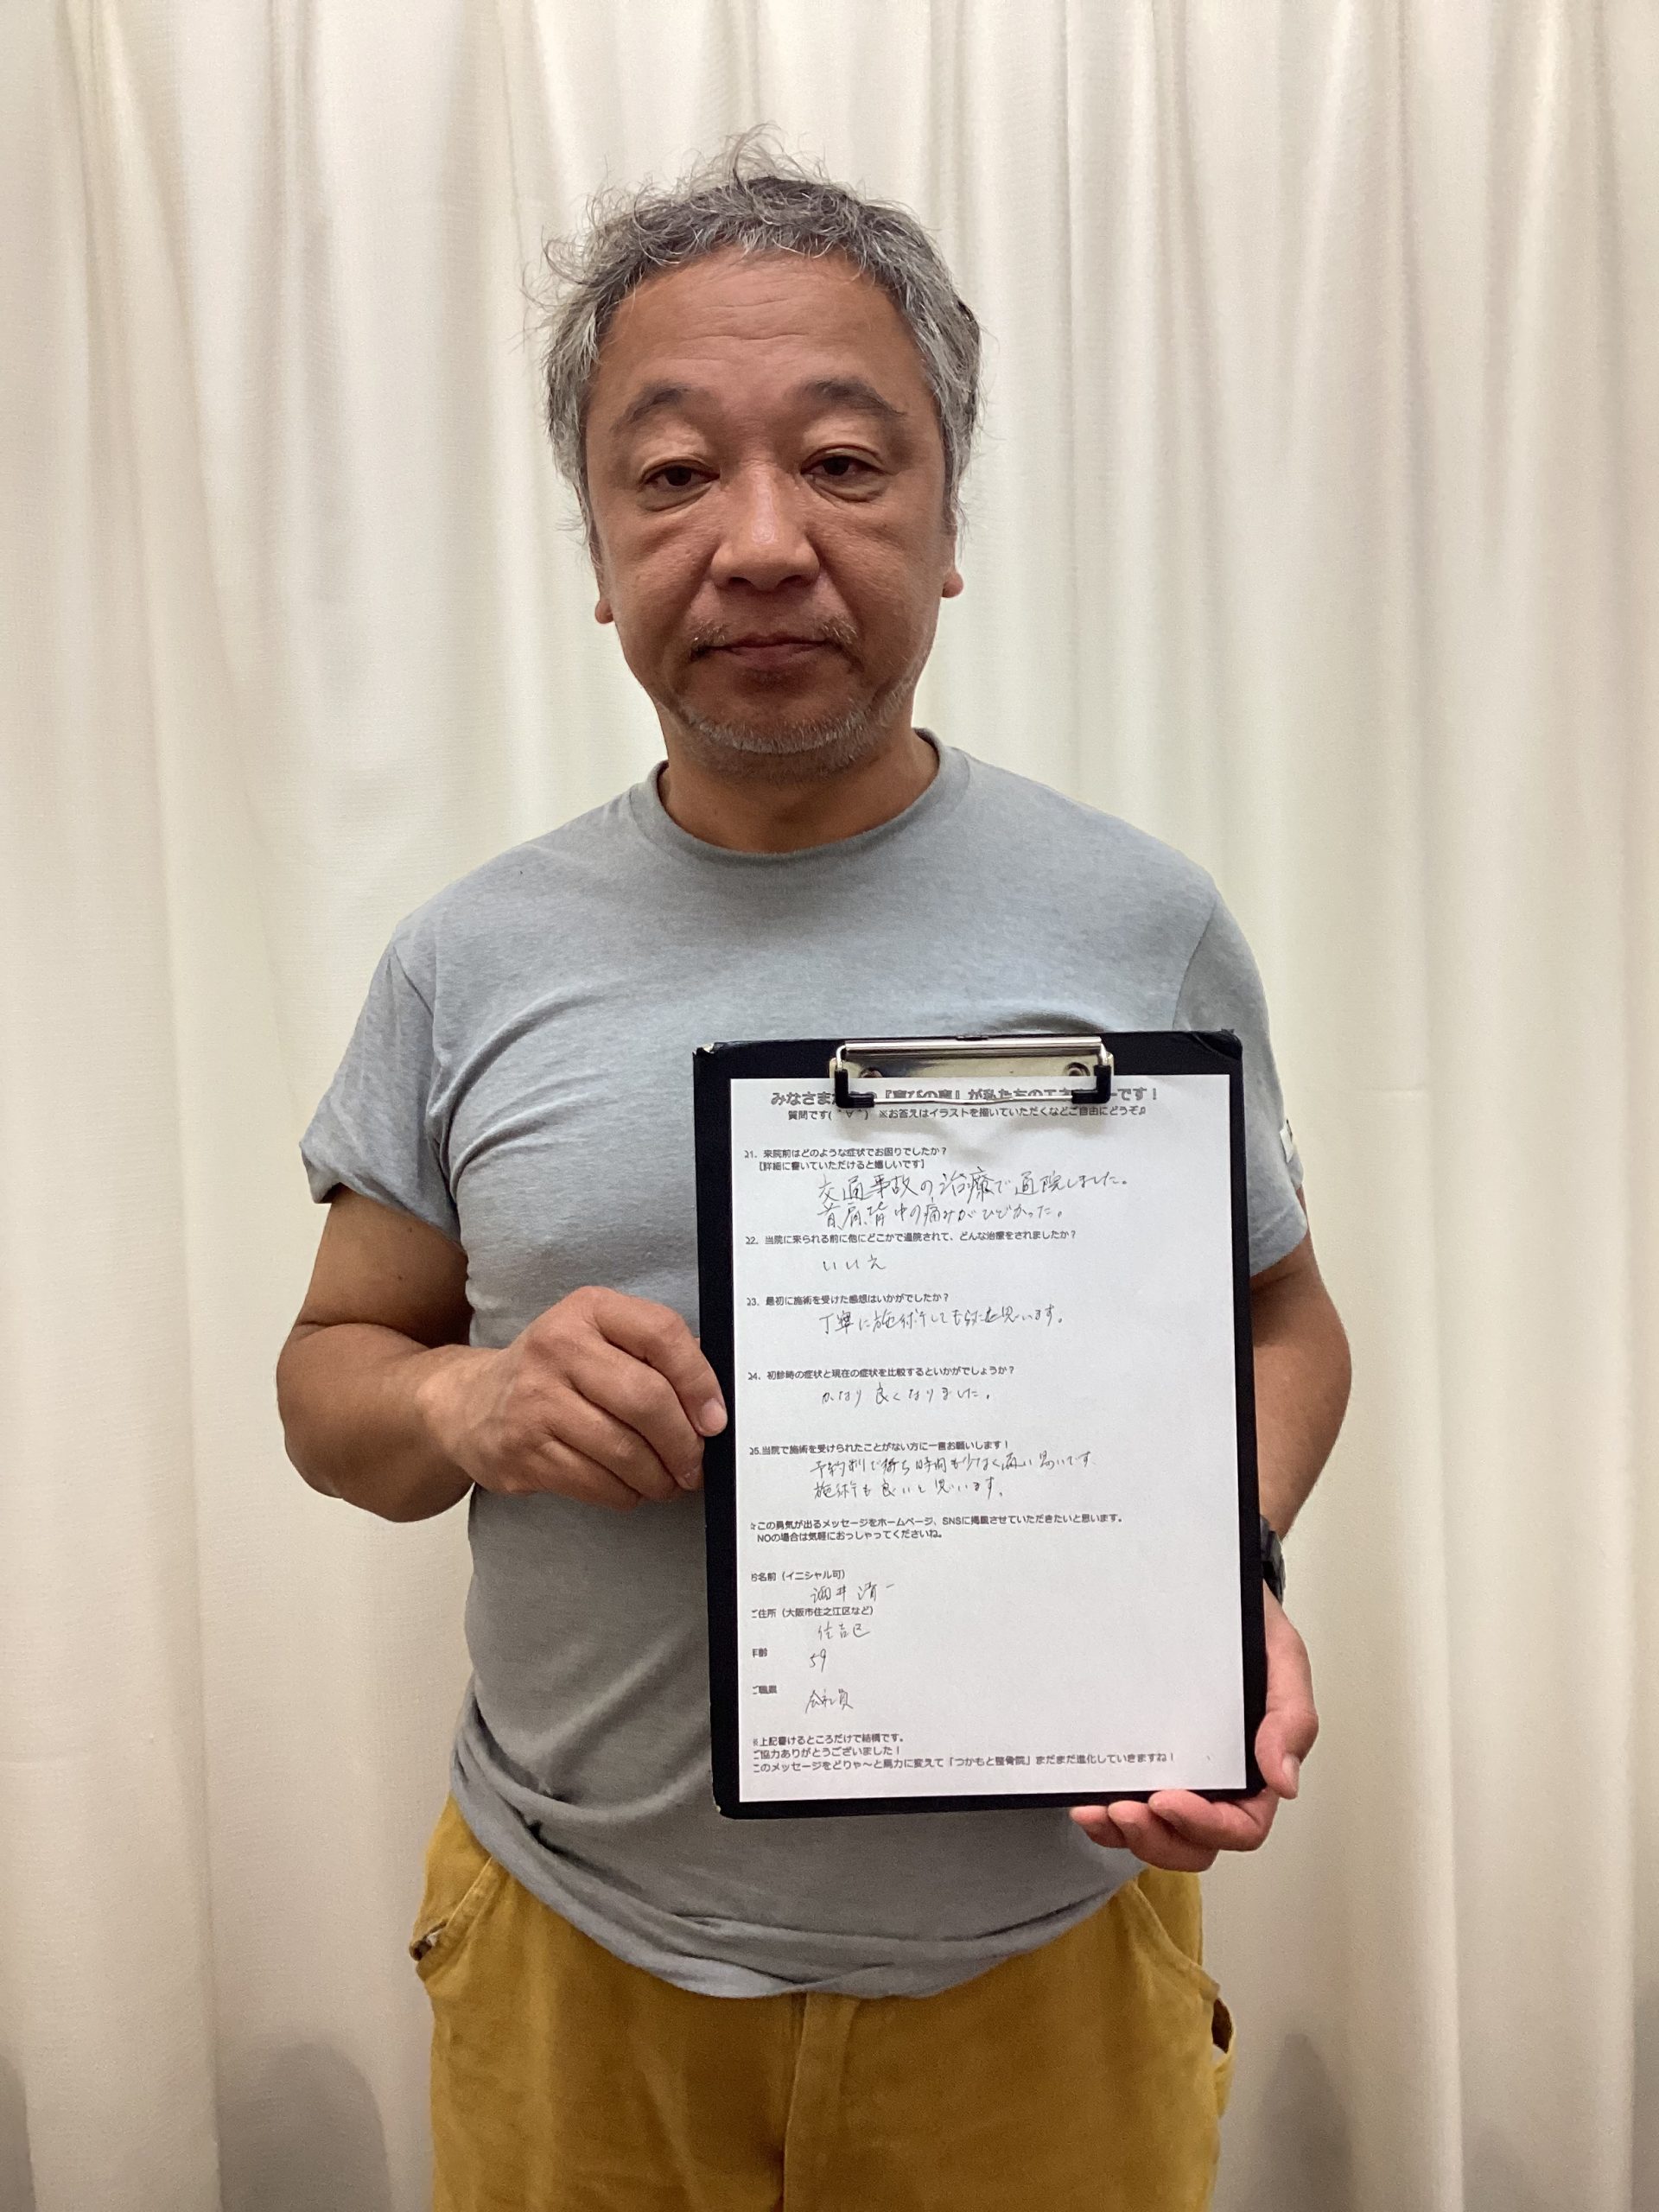 みなさまの『喜びの声』が私たちのエネルギーです！
質問です(＾∀＾)　※お答えはイラストを描いていただくなどご自由にどうぞ♪
21. 来院前はどのような症状でお困りでしたか？
【詳細に書いていただけると嬉しいです】
交通事故の治療で通院しました。
首、肩、背中の痛みがひどかった。
22. 当院に来られる前に他にどこかで通院されて、どんな治療をされましたか？
いいえ
23. 最初に施術を受けた感想はいかがでしたか？
丁寧に施術してもらたと思います。
24. 初診時の症状と現在の症状を比較するといかがでしょうか？
かなり良くなりました。
25.当院で施術を受けられたことがない方に一言お願いします！
予約制で待ち時間も少なく
施術も良いと思います。
☆この勇気が出るメッセージをホームページ、SNSに掲載させていただきたいと思います。
NOの場合は気軽におっしゃってくださいね。
お名前（イニシャル可）
酒井 清一
ご住所（大阪市住之江区など）
住吉区
年齢
59
ご職業
会社員
※上記書けるところだけで結構です。
ご協力ありがとうございました！
このメッセージをどりゃ〜と馬力に変えて「つかもと整骨院」まだまだ進化していきますね！